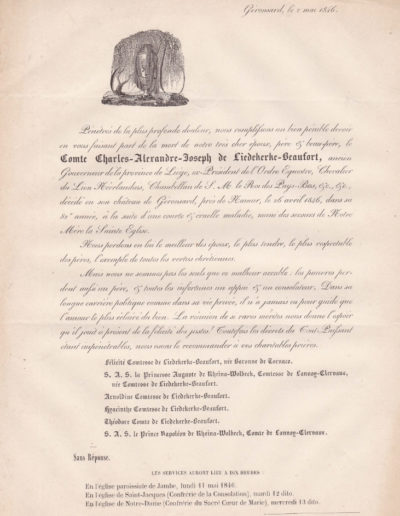 Géronsard, le 2 mai 1846.
Pénétrés de la plus profonde douleur, nous remplissons un bien pénible devoir
en vous faisant part de la mort de notre très cher époux, père & beau-père, le
Comte Charles-Alexandre-Joseph de Liedekerke-Beaufort, ancien
Gouverneur de la province de Liège, ex-Président de l'Ordre Equestre, Chevalier
du Lion Néerlandais, Chambellan de S. M. le Roi des Pays-Bas, &c., &c.,
décédé en son château de Géronsard, près de Namur, le 26 avril 1846, dans sa
82e année, à la suite d'une courte & cruelle maladie, muni des secours de Notre
Mère la Sainte Eglise.
Nous perdons en lui le meilleur des époux, le plus tendre, le plus respectable
des pères, l'exemple de toutes les vertus chrétiennes.
Mais nous ne sommes pas les seuls que ce malheur accable: les pauvres per-
dent aussi un père, & toutes les infortunes un appui & un consolateur. Dans sa
longue carrière politique comme dans sa vie privée, il n'a jamais eu pour guide que
l'amour le plus éclairé du bien. La réunion de si rares mérites nous donne l'espoir
qu'il jouit à présent de la félicité des justes! Toutefois les décrets du Tout-Puissant
étant impénétrables, nous osons le recommander à vos charitables prières.
Félicité Comtesse de Liedekerke-Beaufort, née Baronne de Tornaco.
S. A. S. la Princesse Auguste de Rheina-Wolbeck, Comtesse de Lannoy-Clervaux,
née Comtesse de Liedekerke-Beaufort.
Arnoldine Comtesse de Liedekerke-Beaufort.
Hyacinthe Comtesse de Liedekerke-Beaufort.
Théodore Comte de Liedekerke-Beaufort.
S. A. S. le Prince Napoléon de Rheina-Wolbeck, Comte de Lannoy-Clervaux.
Sans Réponse.
LES SERVICES AURONT LIEU A DIX HEURES :
En l'église paroissiale de Jambe, lundi 11 mai 1846.
En l'église de Saint-Jacques (Confrérie de la Consolation), mardi 12 dito.
En l'église de Notre-Dame (Confrérie du Sacré Cœur de Marie), mercredi 13 dito.